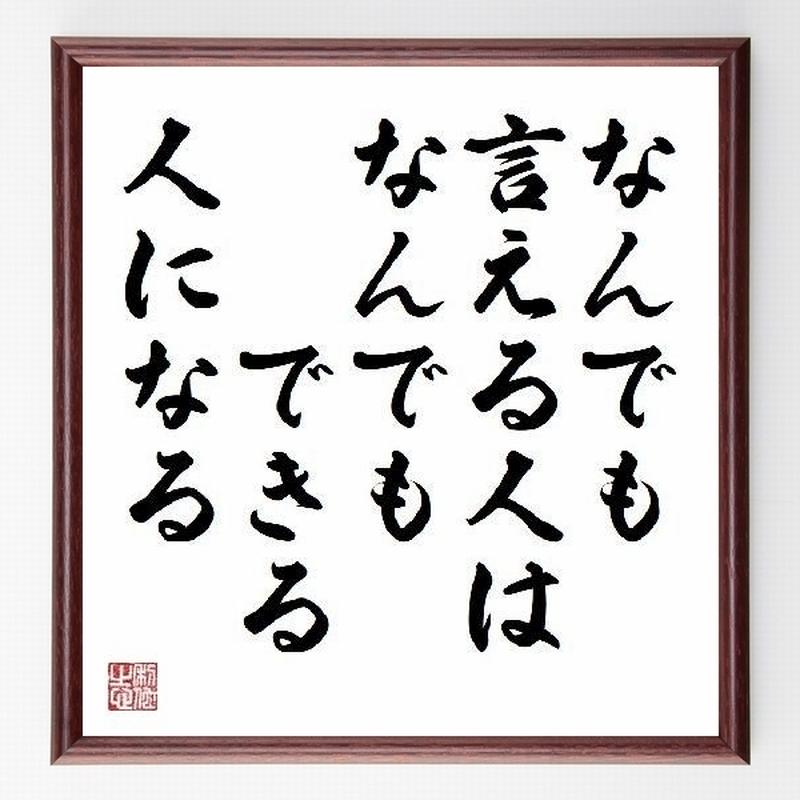 なんでも
言える人は
なんでも
できる
人になる